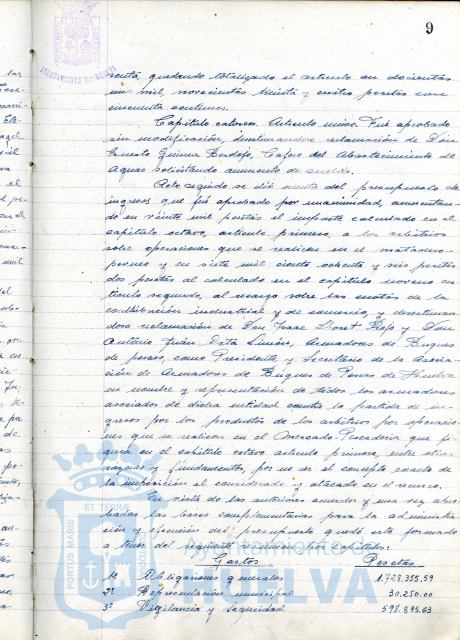 9
AYUNTAMIENTO DE HUELVA
senta, quedando totalizado el articulo en doscientas
un mil, novecientas treinta y cuatro pesetas con
cincuenta centimos.
Capitulo catorce. Articulo unico. Fué aprobado
sin modificación, desestimandose reclamación de Don
Ernesto Gomez Bardajo, Cajero del Abastecimiento de
Aguas solicitando aumento de sueldo.
Acto seguido se dió cuenta del presupuesto de
ingresos que fué aprobado por unanimidad, aumentan-
do en veinte mil pesetas el importe calculado en el
capitulo octavo, articulo primero, a los arbitrios
sobre operaciones que se realicen en el matadero-
porcuno y en siete mil ciento ochenta y seis pesetas
dos pesetas al calculado en el capitulo noveno ar-
ticulo segundo, al recargo sobre las cuotas de la
contribución industrial y de comercio, y desestiman-
dose reclamación de Don Isaac Lloret Rojo y Don
Antonio Juán Limón, Armadores de Buques
de pesca, como Presidente y Secretario de la Asocia-
ción de Armadores de Buques de Pesca de Huelva
en nombre y representación de todos los armadores
asociados de dicha entidad contra la partida de in-
gresos por los productos de los arbitrios por operacio-
nes que se realicen en el Mercado-Pescaderia que fi-
gura en el capitulo octavo articulo primero, entre otras
razones y fundamentos, por no ser el concepto exacto de
la imposición el considerado y atacado en el recurso.
En vista de los anteriores acuerdos y una vez apro-
badas las bases complementarias para la administra-
ción y ejecución del presupuesto quedó este formado
a tenor del siguiente resumen por capitulos:
Gastos Pesetas
1º Obligaciones generales 1.728.355.59
2º Representación municipal 30.250.00
3º Vigilancia y seguridad 598.895.63
PORTUS MARIS ET TERRA
Ayuntamiento
HUELVA